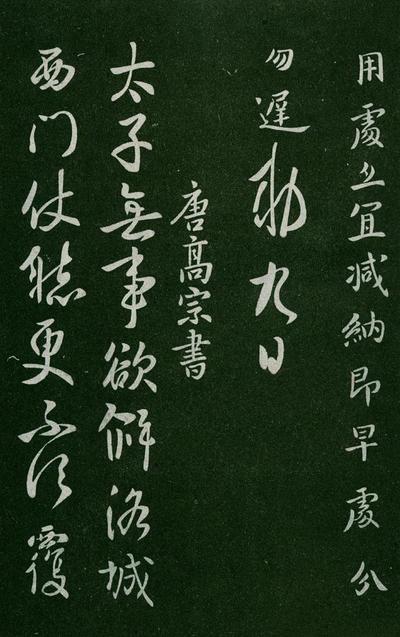 用處並宜減納即早處分
勿遲勅九日
唐髙宗書
太子無事欲解洛城
西門仗聽更不須覆